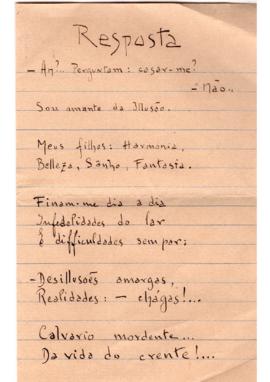 Resposta
– An?.. Perguntam: casar-me?
– Não..
Sou amante da Illusão.
Meus filhos: Harmonia,
Belleza, Sonho, Fantasia.
Finam-me dia a dia
Infedelidades do lar
E difficuldades sem par:
– Desillusões amargas,
Realidades: – chágas!...
Calvario mordente...
Da vida do crente!...